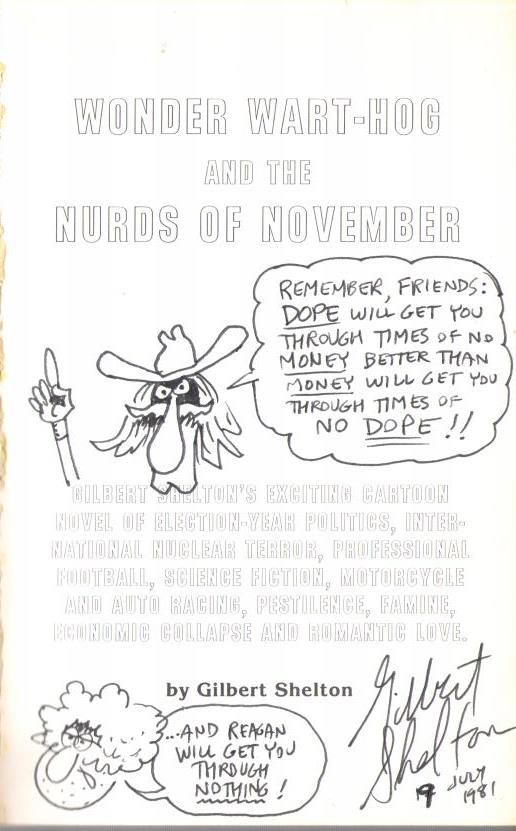 WONDER WART-HOG
AND THE
NURDS OF NOVEMBER
REMEMBER, FRIENDS:
DOPE WILL GET YOU
THROUGH TIMES OF NO
MONEY BETTER THAN
MONEY WILL GET YOU
THROUGH TIMES OF
NO DOPE!!
GILBERT SHELTON'S EXCITING CARTOON
NOVEL OF ELECTION-YEAR POLITICS, INTER-
NATIONAL NUCLEAR TERROR, PROFESSIONAL
FOOTBALL, SCIENCE FICTION, MOTORCYCLE
AND AUTO RACING, PESTILENCE, FAMINE,
ECONOMIC COLLAPSE AND ROMANTIC LOVE.
by Gilbert Shelton
...AND REAGAN
WILL GET YOU
THROUGH
NOTHING!
Gilbert
Shelton
JULY
1981